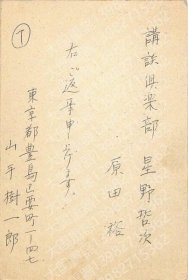 講談倶楽部
星野哲次
原田裕
右ご返事申上ます。
東京都豊島区要町一ノ四七
山手樹一郎